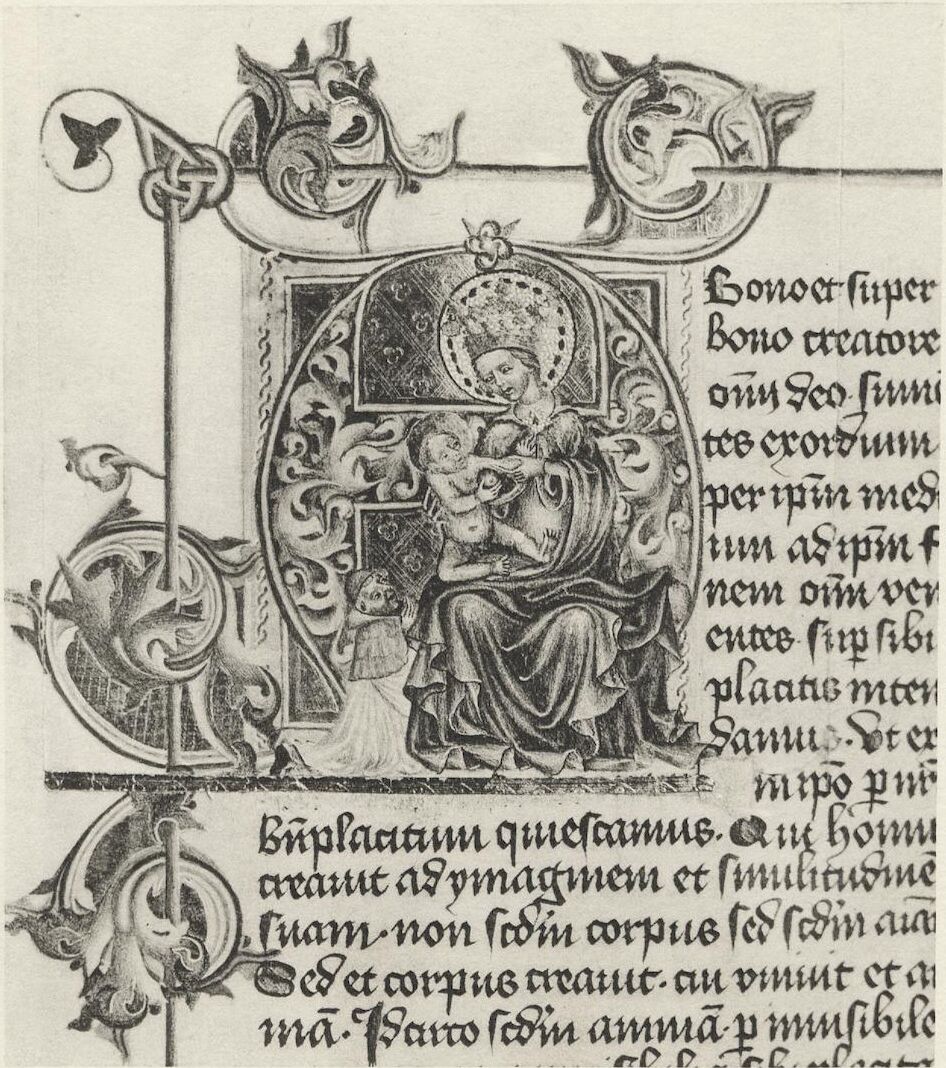 Bono et super
bono creatore
om̄i deo sumi
tes exordium
per ip̄m medi
um ad ip̄m f
nem om̄i ven
entes sup sibi
placitis inten
damus. Ut er
in ip̄o p
bn̄placitum quiescamus. Qui homin
creavit ad ymaginem et similitudinē
suam. non scd̄m corpus sed scd̄m
Sed et corpus creavit. cui vivit et a
mā. Porro scd̄m animā. p invisibile